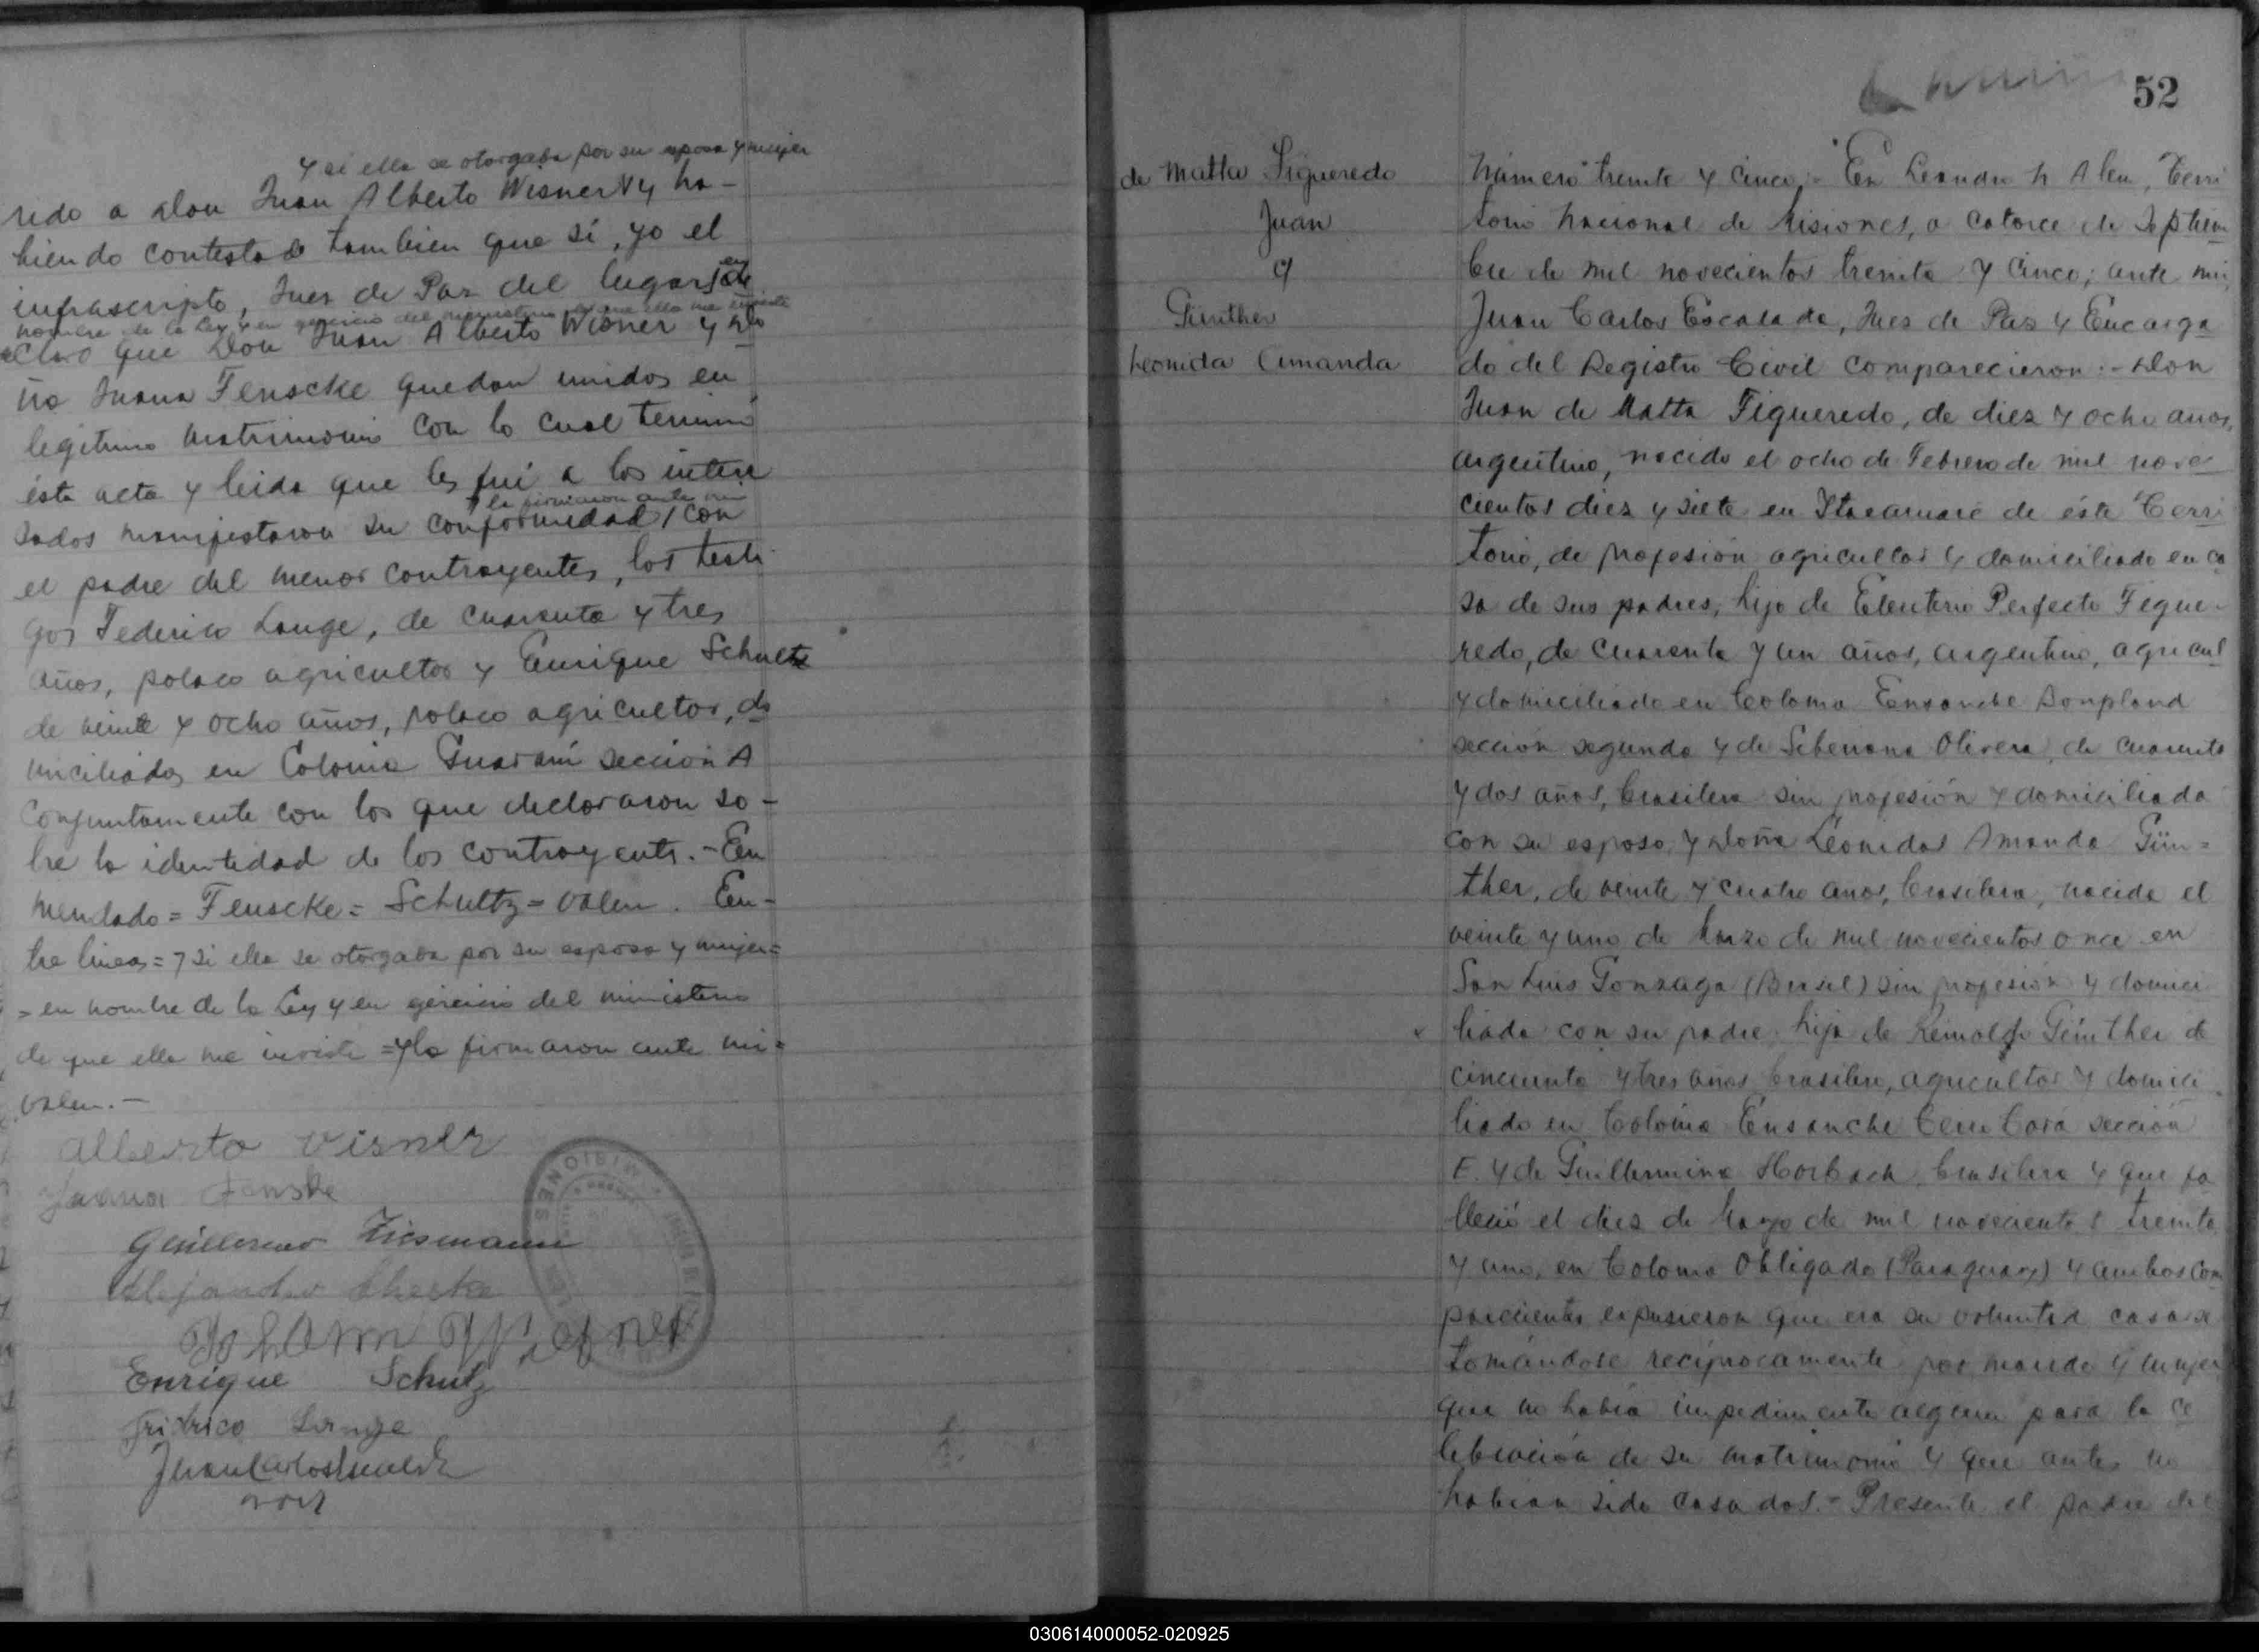 y si ella se otorgaba por su esposa y mujer
rido a don Juan Alberto Wisner y ha-
biendo contestado tambien que sí, yo el
infrascripto, Juez de Paz del lugar, en
nombre de la Ley y en ejercicio del ministerio de que ella me inviste
declaro que Don Juan Alberto Wisner y do
ña Juana Fenscke quedan unidos en
legitimo matrimonio con lo cual terminó
ésta acta y leida que les fué a los intere
y la firmaron ante mi
sados manifestaron su conformidad / con
el padre del menor contrayentes, los testi-
gos Federico Lange, de cuarenta y tres
años, polaco agricultor y Enrique Schultz
de veinte y ocho años, polaco agricultor, do
miciliados en Colonia Guaraní sección A
conjuntamente con los que declararon so-
bre la identidad de los contrayents. - En
mendado = Fenscke = Schultz = valen. En-
tre lineas = y si ella se otorgaba por su esposa y mujer =
= en nombre de la Ley y en ejercicio del ministerio
de que ella me inviste = y la firmaron ante mi =
valen. -
Alberto Visner
Juana Fenske
Guillermo Ziesmann
Alejandro
Johann
Enrique Schulz
Fridrico Lange
Juan Carlos Escalada
MISIONES
52
de Matta Figueredo
Juan
y
Günther
Leonida Amanda
Número treinta y cinco: - En Leandro N Alem, Terri
torio Nacional de Misiones, a catorce de Septiem
bre de mil novecientos treinta y cinco; ante mi,
Juan Carlos Escalada, Juez de Paz y Encarga
do del Registro Civil comparecieron: - Don
Juan de Matta Figueredo, de diez y ocho años,
argentino, nacido el ocho de Febrero de mil nove
cientos diez y siete en Itacaruaré de éste Terri
torio, de profesión agricultor y domiciliado en ca
sa de sus padres, hijo de Eleuterio Perfecto Figue-
redo, de cuarenta y un años, argentino, agricul
y domiciliado en Colonia Ensanche Bonpland
sección segunda y de Seberiana Olivera, de cuarenta
y dos años, brasilera sin profesión y domiciliada
con su esposo, y doña Leonidas Amanda Gün=
ther, de veinte y cuatro años, brasilera, nacida el
veinte y uno de Marzo de mil novecientos once en
San Luis Gonzaga (Brasil) sin profesión y domici
liada con su padre hija de Reinoldo Günther de
cincuenta y tres años brasilero, agricultor y domici
liado en Colonia Ensanche Cerro Corá sección
E. y de Guillermina Horbach, brasilera y que fa
lleció el diez de Mayo de mil novecientos treinta
y uno, en Colonia Obligado (Paraguay) y ambos com
parecientes expusieron que era su voluntad casarse
tomándose recíprocamente por marido y mujer
que no había impedimento alguno para la ce
lebración de su matrimonio y que antes no
habían sido casados. - Presente el padre del
030614000052-020925